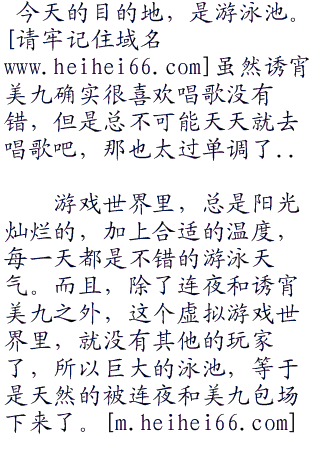 今天的目的地，是游泳池。
[请牢记住域名
www.heihei66.com]虽然诱宵
美九确实很喜欢唱歌没有
错，但是总不可能天天就去
唱歌吧，那也太过单调了..
游戏世界里，总是阳光
灿烂的，加上合适的温度，
每一天都是不错的游泳天
气。而且，除了连夜和诱宵
美九之外，这个虚拟游戏世
界里，就没有其他的玩家
了，所以巨大的泳池，等于
是天然的被连夜和美九包场
下来了。[m.heihei66.com]